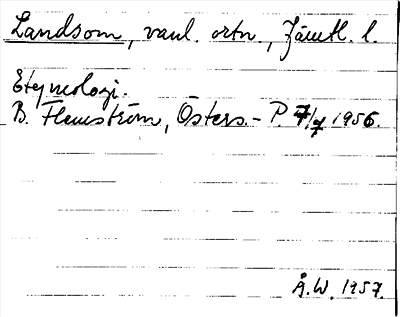 Landsom, vanl. ortn., Jämtl. l.
Etymologi.
B. Flemström, Östers.-P. 7/7 1956.
Å.W. 1957.